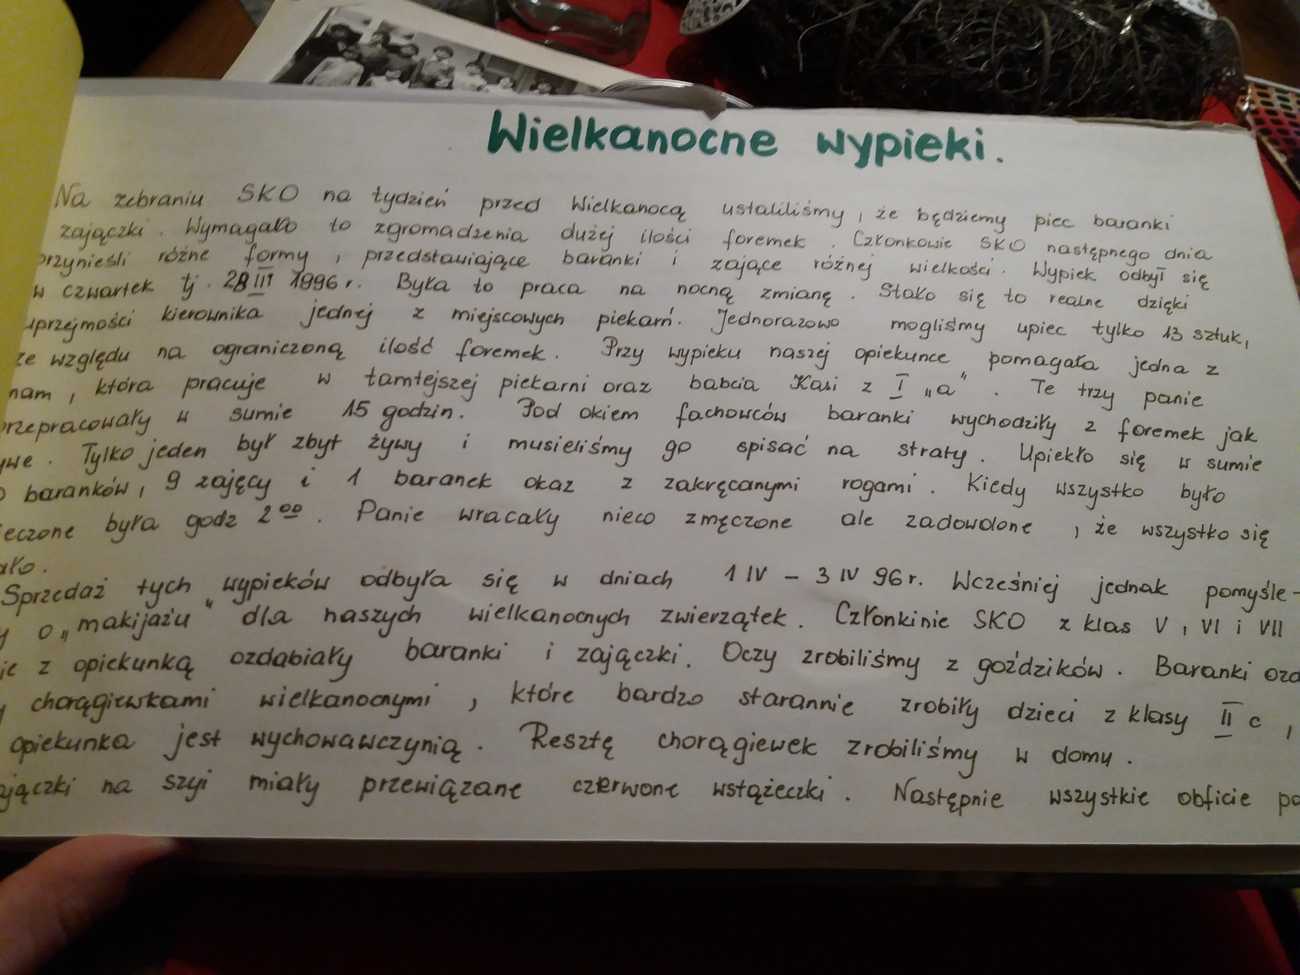 Wielkanocne wypieki.
Na zebraniu SKO na tydzień przed Wielkanocą ustaliliśmy, że będziemy piec baranki
zajączki. Wymagało to zgromadzenia dużej ilości foremek. Członkowie SKO następnego dnia
przynieśli różne formy, przedstawiające baranki i zające różnej wielkości. Wypiek odbył się
w czwartek tj. 28 III 1996 r. Była to praca na nocną zmianę. Stało się to realne dzięki
uprzejmości kierownika jednej z miejscowych piekarń. Jednorazowo mogliśmy upiec tylko 13 sztuk,
ze względu na ograniczoną ilość foremek. Przy wypieku naszej opiekunce pomagała jedna z
mam, która pracuje w tamtejszej piekarni oraz babcia Kasi z I „a". Te trzy panie
przepracowały w sumie 15 godzin. Pod okiem fachowców baranki wychodziły z foremek jak
ywe. Tylko jeden był zbyt żywy i musieliśmy go spisać na straty. Upiekło się w sumie
baranków, 9 zajęcy i 1 baranek okaz z zakręcanymi rogami. Kiedy wszystko było
eczone była godz 2⁰⁰. Panie wracały nieco zmęczone ale zadowolone, że wszystko się
ało.
Sprzedaż tych wypieków odbyła się w dniach 1 IV - 3 IV 96 r. Wcześniej jednak pomyśle-
y o „makijażu" dla naszych wielkanocnych zwierzątek. Członkinie SKO z klas V, VI i VII
ie z opiekunką ozdabiały baranki i zajączki. Oczy zrobiliśmy z goździków. Baranki ozd
y chorągiewkami wielkanocnymi, które bardzo starannie zrobiły dzieci z klasy II c,
opiekunka jest wychowawczynią. Resztę chorągiewek zrobiliśmy w domu.
ajączki na szyi miały przewiązane czerwone wstążeczki. Następnie wszystkie obficie po